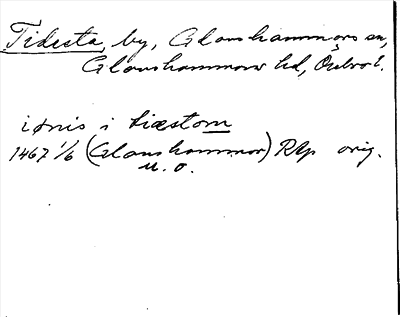 Tidesta, by, Glanshammars sn,
Glanshammar hd, Örebro l.
i dnis i tiæstom
1467 1/6 (Glanshammar) RAp orig.
u. o.